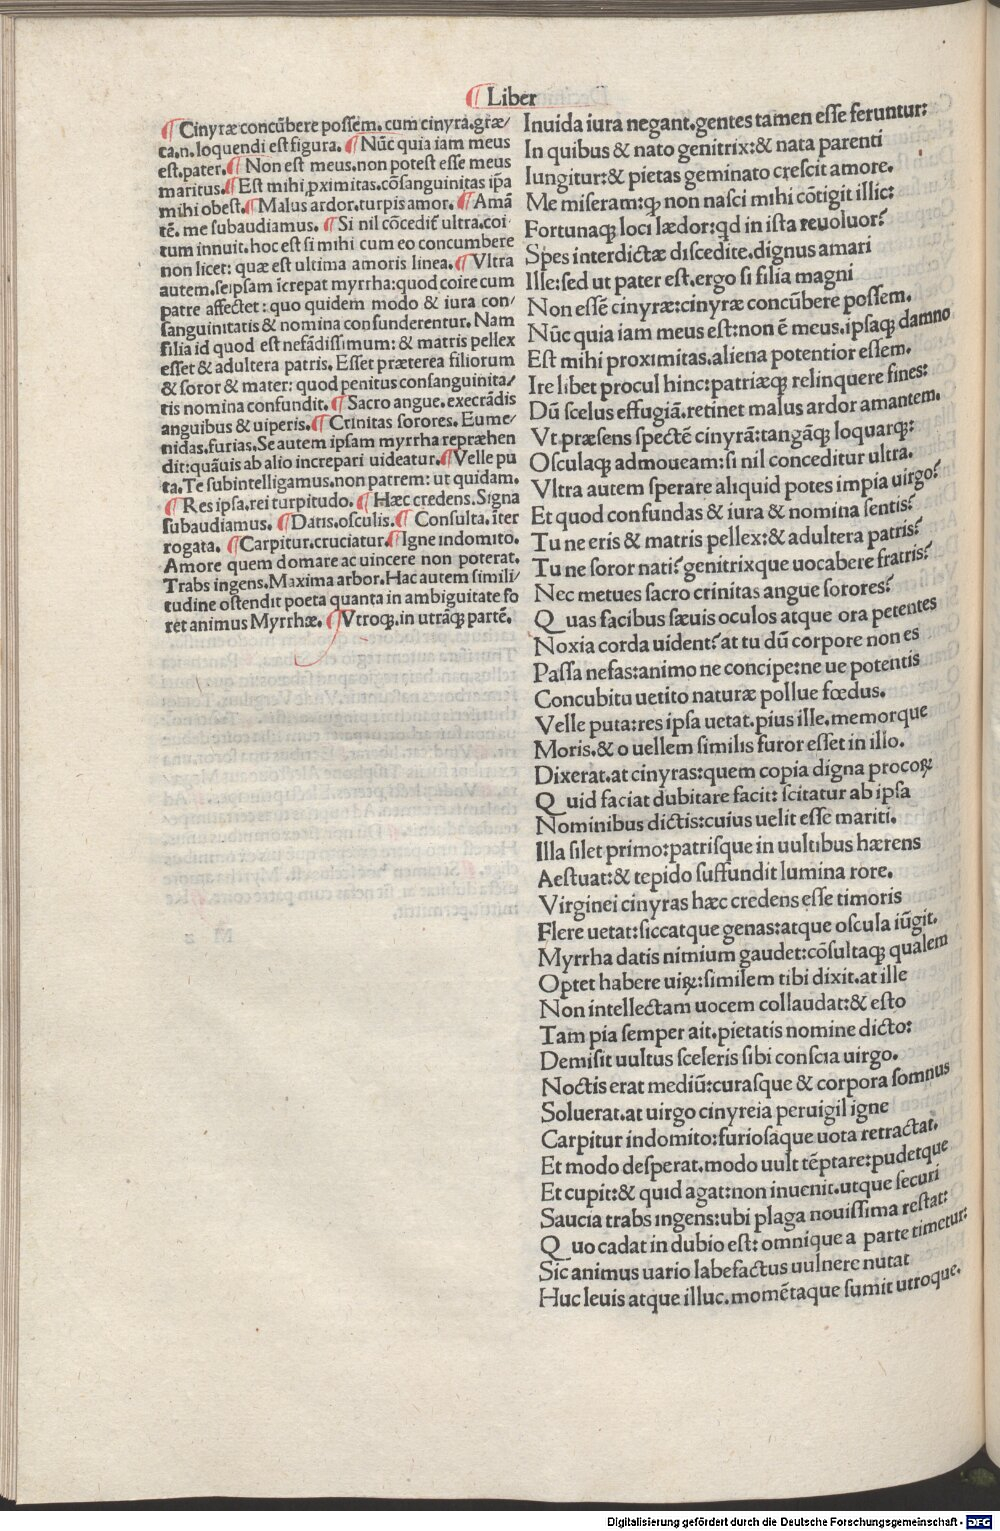 ¶ Liber
¶ Cinyræ concũbere possem. cum cinyra. græ/
ca. n. loquendi est figura. ¶ Nũc quia iam meus
est. pater. ¶ Non est meus. non potest esse meus
maritus. ¶ Est mihi ꝓximitas. cõsanguinitas ip̃a
mihi obest. ¶ Malus ardor. turpis amor. ¶ Amã
tẽ. me subaudiamus. ¶ Si nil cõcedit᷑ ultra. coi
tum innuit. hoc est si mihi cum eo concumbere
non licet: quæ est ultima amoris linea. ¶ Vltra
autem. seipsam ĩcrepat myrrha: quod coire cum
patre affectet: quo quidem modo & iura con/
sanguinitatis & nomina confunderentur. Nam
filia id quod est nefãdissimum: & matris pellex
esset & adultera patris. Esset præterea filiorum
& soror & mater: quod penitus consanguinita/
tis nomina confundit. ¶ Sacro angue. execrãdis
anguibus & uiperis. ¶ Crinitas sorores. Eume/
nidas. furias. Se autem ipsam myrrha repræhen
dit: quãuis ab alio increpari uideatur. ¶ Velle pu
ta. Te subintelligamus. non patrem: ut quidam.
¶ Res ipsa. rei turpitudo. ¶ Hæc credens. Signa
subaudiamus. ¶ Datis. osculis. ¶ Consulta. ĩter
rogata. ¶ Carpitur. cruciatur. ¶ Igne indomito.
Amore quem domare ac uincere non poterat.
Trabs ingens. Maxima arbor. Hac autem simili/
tudine ostendit poeta quanta in ambiguitate fo
ret animus Myrrhæ. ¶ Vtroqꝫ. in utrãqꝫ partẽ.
Inuida iura negant. gentes tamen esse feruntur:
In quibus & nato genitrix: & nata parenti
Iungitur: & pietas geminato crescit amore.
Me miseram: qꝙ non nasci mihi cõtigit illic:
Fortunaqꝫ loci lædor: qd in ista reuoluor?
Spes interdictæ discedite. dignus amari
Ille: sed ut pater est. ergo si filia magni
Non essẽ cinyræ: cinyræ concũbere possem.
Nũc quia iam meus est: non ẽ meus. ipsaqꝫ damno
Est mihi proximitas. aliena potentior essem.
Ire libet procul hinc: patriæqꝫ relinquere fines:
Dũ scelus effugiã. retinet malus ardor amantem.
Vt præsens spectẽ cinyrã: tangãqꝫ loquarqꝫ:
Osculaqꝫ admoueam: si nil conceditur ultra.
Vltra autem sperare aliquid potes impia uirgo?
Et quod confundas & iura & nomina sentis?
Tu ne eris & matris pellex: & adultera patris?
Tu ne soror nati? genitrixque uocabere fratris?
Nec metues sacro crinitas angue sorores?
Quas facibus sæuis oculos atque ora petentes
Noxia corda uident? at tu dũ corpore non es
Passa nefas: animo ne concipe: ne ue potentis
Concubitu uetito naturæ pollue fœdus.
Velle puta: res ipsa uetat. pius ille. memorque
Moris. & o uellem similis furor esset in illo.
Dixerat. at cinyras: quem copia digna procoꝝ
Quid faciat dubitare facit: scitatur ab ipsa
Nominibus dictis: cuius uelit esse mariti.
Illa silet primo: patrisque in uultibus hærens
Aestuat: & tepido suffundit lumina rore.
Virginei cinyras hæc credens esse timoris
Flere uetat: siccatque genas: atque oscula iũgit.
Myrrha datis nimium gaudet: cõsultaqꝫ qualem
Optet habere uiꝝ: similem tibi dixit. at ille
Non intellectam uocem collaudat: & esto
Tam pia semper ait. pietatis nomine dicto:
Demisit uultus sceleris sibi conscia uirgo.
Noctis erat mediũ: curasque & corpora somnus
Soluerat. at uirgo cinyreia peruigil igne
Carpitur indomito: furiosaque uota retractat.
Et modo desperat. modo uult tẽptare: pudetque
Et cupit: & quid agat: non inuenit. utque securi
Saucia trabs ingens: ubi plaga nouissima restat:
Quo cadat in dubio est: omnique a parte timetur:
Sic animus uario labefactus uulnere nutat
Huc leuis atque illuc. momẽtaque sumit utroque.
Digitalisierung gefördert durch die Deutsche Forschungsgemeinschaft - DFG